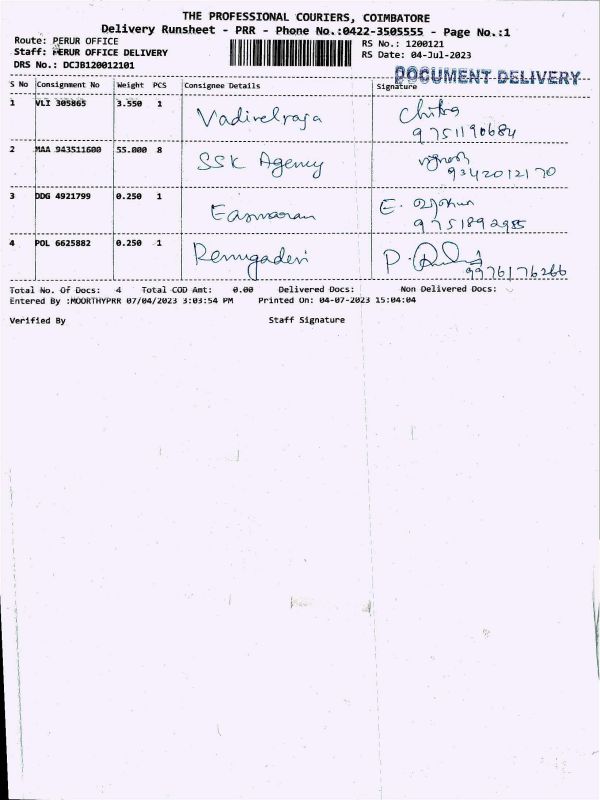 THE PROFESSIONAL COURIERS, COIMBATORE
Delivery Runsheet - PRR - Phone No.:0422-3505555 - Page No.:1
Route: PERUR OFFICE
RS No.: 1200121
Staff: PERUR OFFICE DELIVERY
RS Date: 04-Jul-2023
DRS No.: DCJB120012101
DOCUMENT DELIVERY
S No Consignment No Weight PCS Consignee Details Signature
1 VLI 305865 3.550 1 Vadivelraja Chitra
9751190684
2 MAA 943511600 55.000 8 SSK Agency
9342012170
3 DDG 4921799 0.250 1 Easwaran E.
9751892955
4 POL 6625882 0.250 1 Renugadevi P.
9976176266
Total No. Of Docs: 4 Total COD Amt: 0.00 Delivered Docs: Non Delivered Docs:
Entered By :MOORTHYPRR 07/04/2023 3:03:54 PM Printed On: 04-07-2023 15:04:04
Verified By Staff Signature